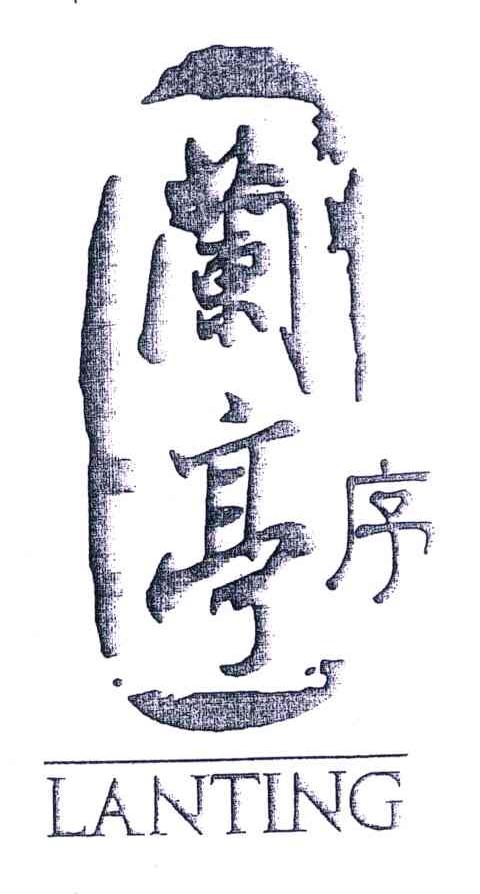 蘭亭
序
LANTING